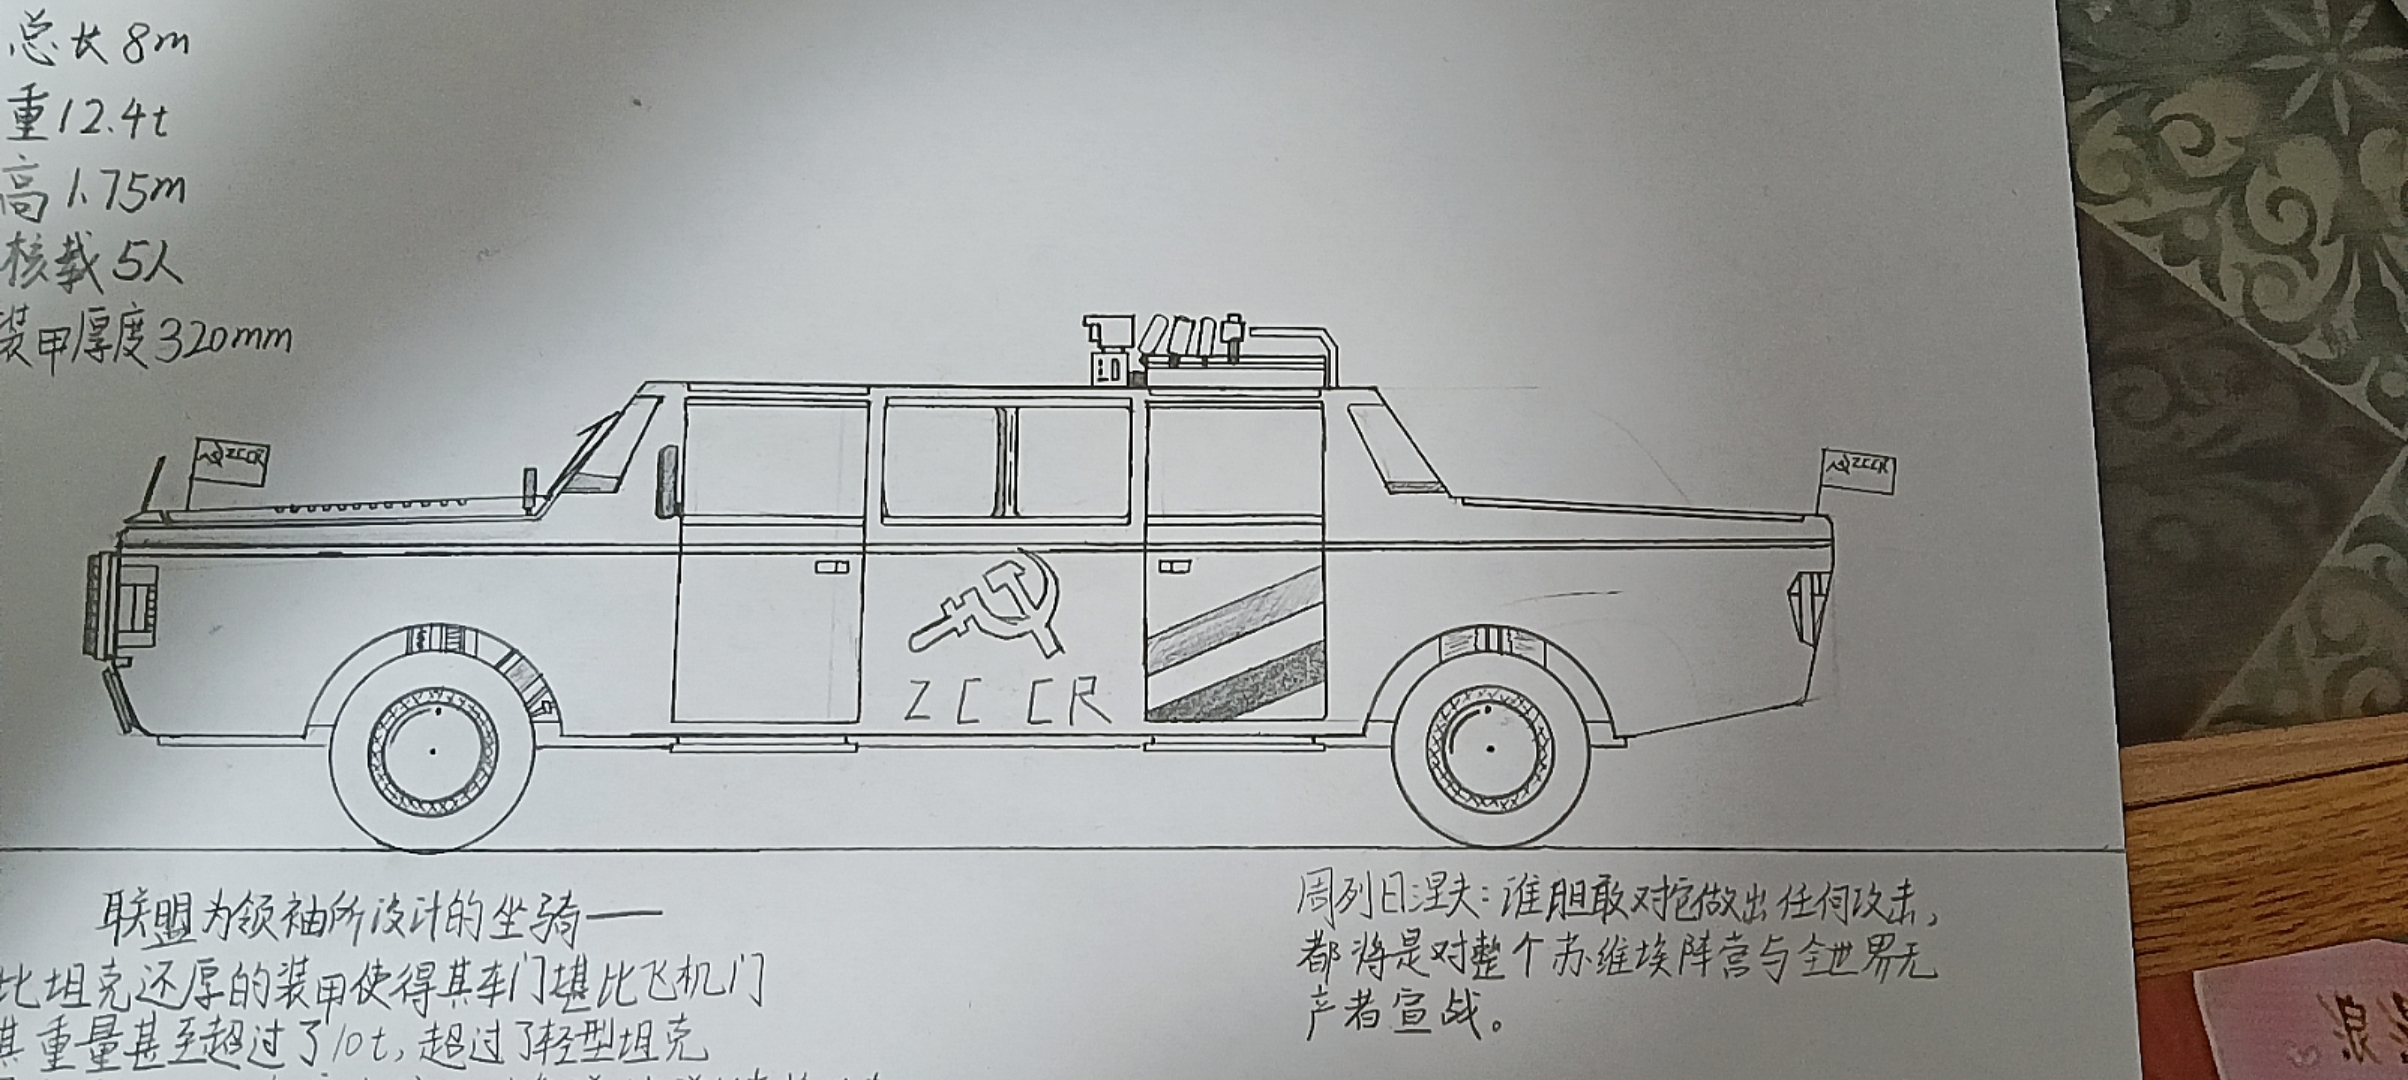 总长8m
重12.4t
高1.75m
核载5人
装甲厚度320mm
ZCCR
ZCCR
ZCCR
联盟为领袖所设计的坐骑——
比坦克还厚的装甲使得其车门堪比飞机门
其重量甚至超过了10t,超过了轻型坦克
周列日涅夫:谁胆敢对它做出任何攻击,
都将是对整个苏维埃阵营与全世界无
产者宣战。
浪